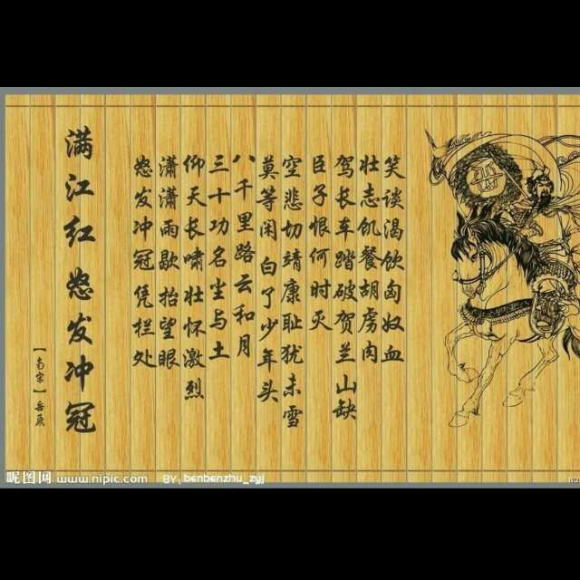 满江红 怒发冲冠
【南宋】岳飞
怒发冲冠凭栏处
潇潇雨歇抬望眼
仰天长啸壮怀激烈
三十功名尘与土
八千里路云和月
莫等闲白了少年头
空悲切靖康耻犹未雪
臣子恨何时灭
驾长车踏破贺兰山缺
壮志饥餐胡虏肉
笑谈渴饮匈奴血
昵图网 www.nipic.com BY:benbenzhu_zyj